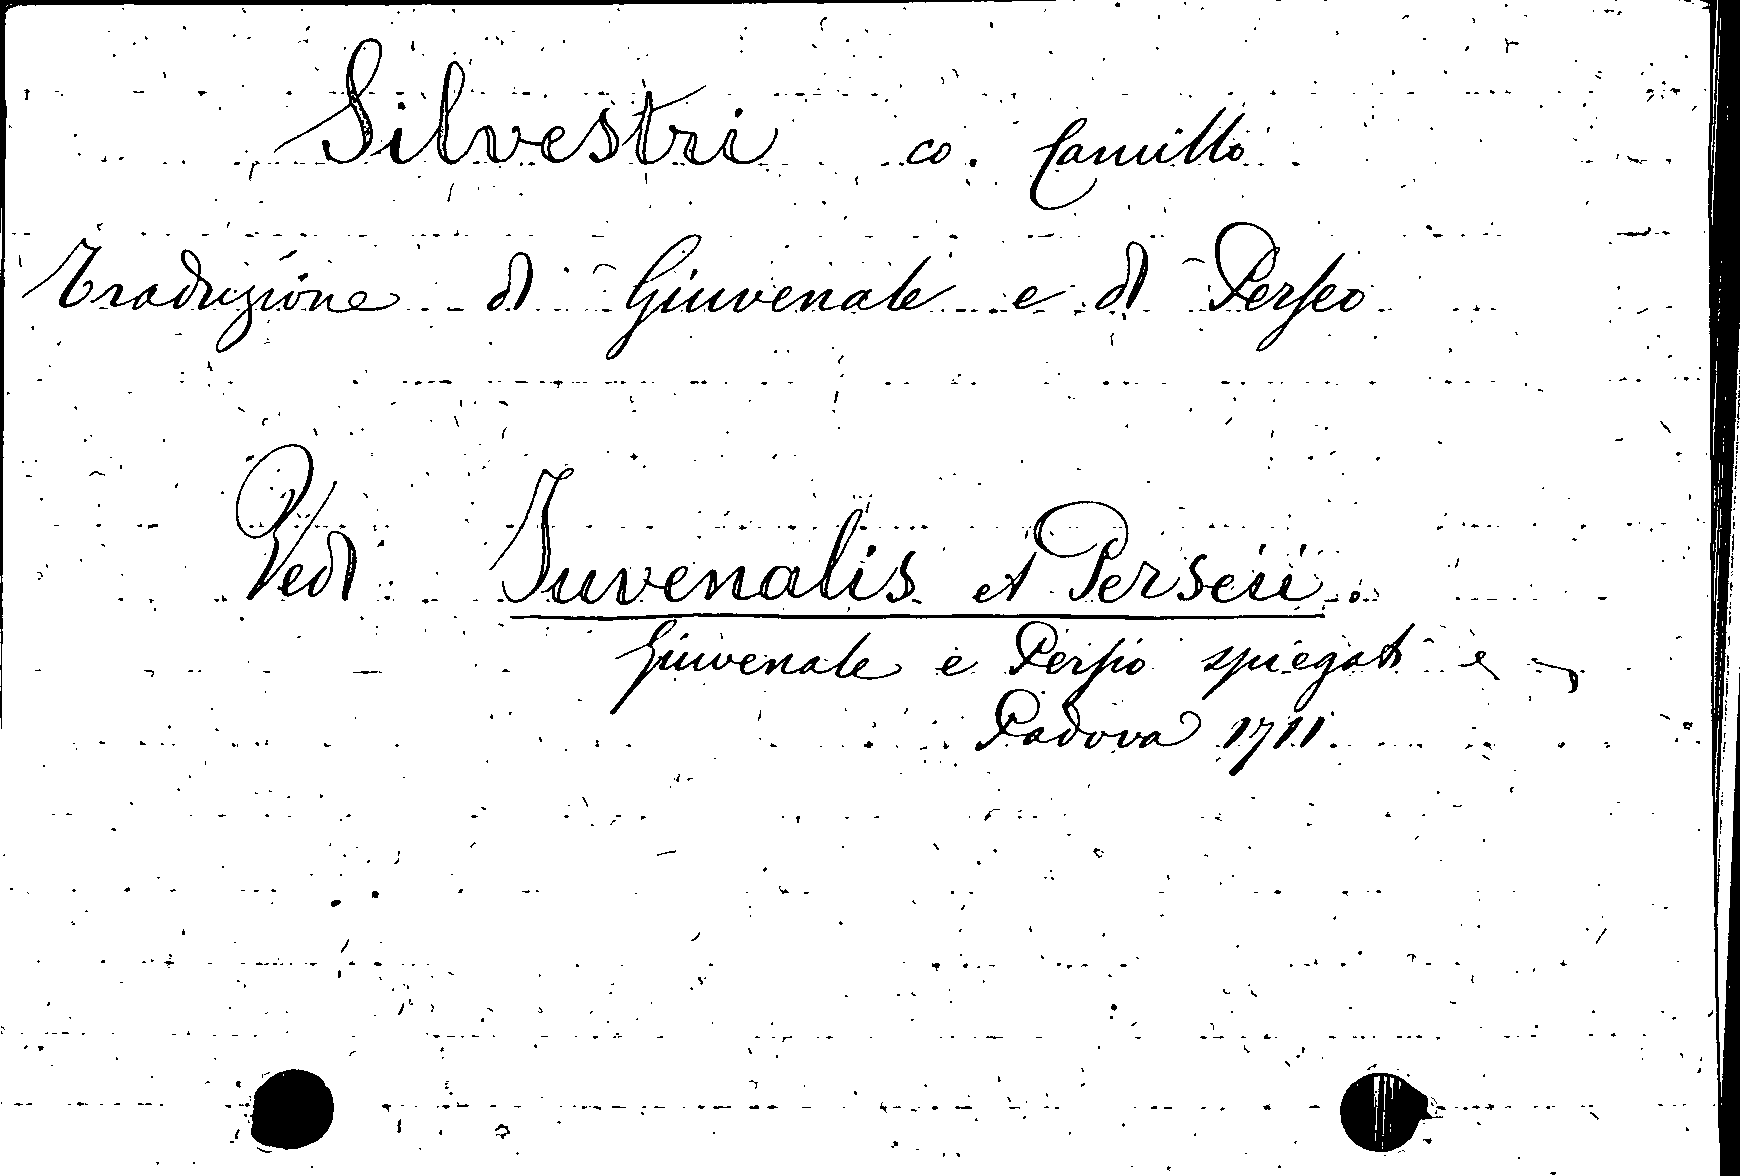 Silvestri co. Camillo
Traduzione di Giuvenale e di Perseo
Vedi Juvenalis et Perseii.
Giuvenale e Persio spiegati e
Padova 1711